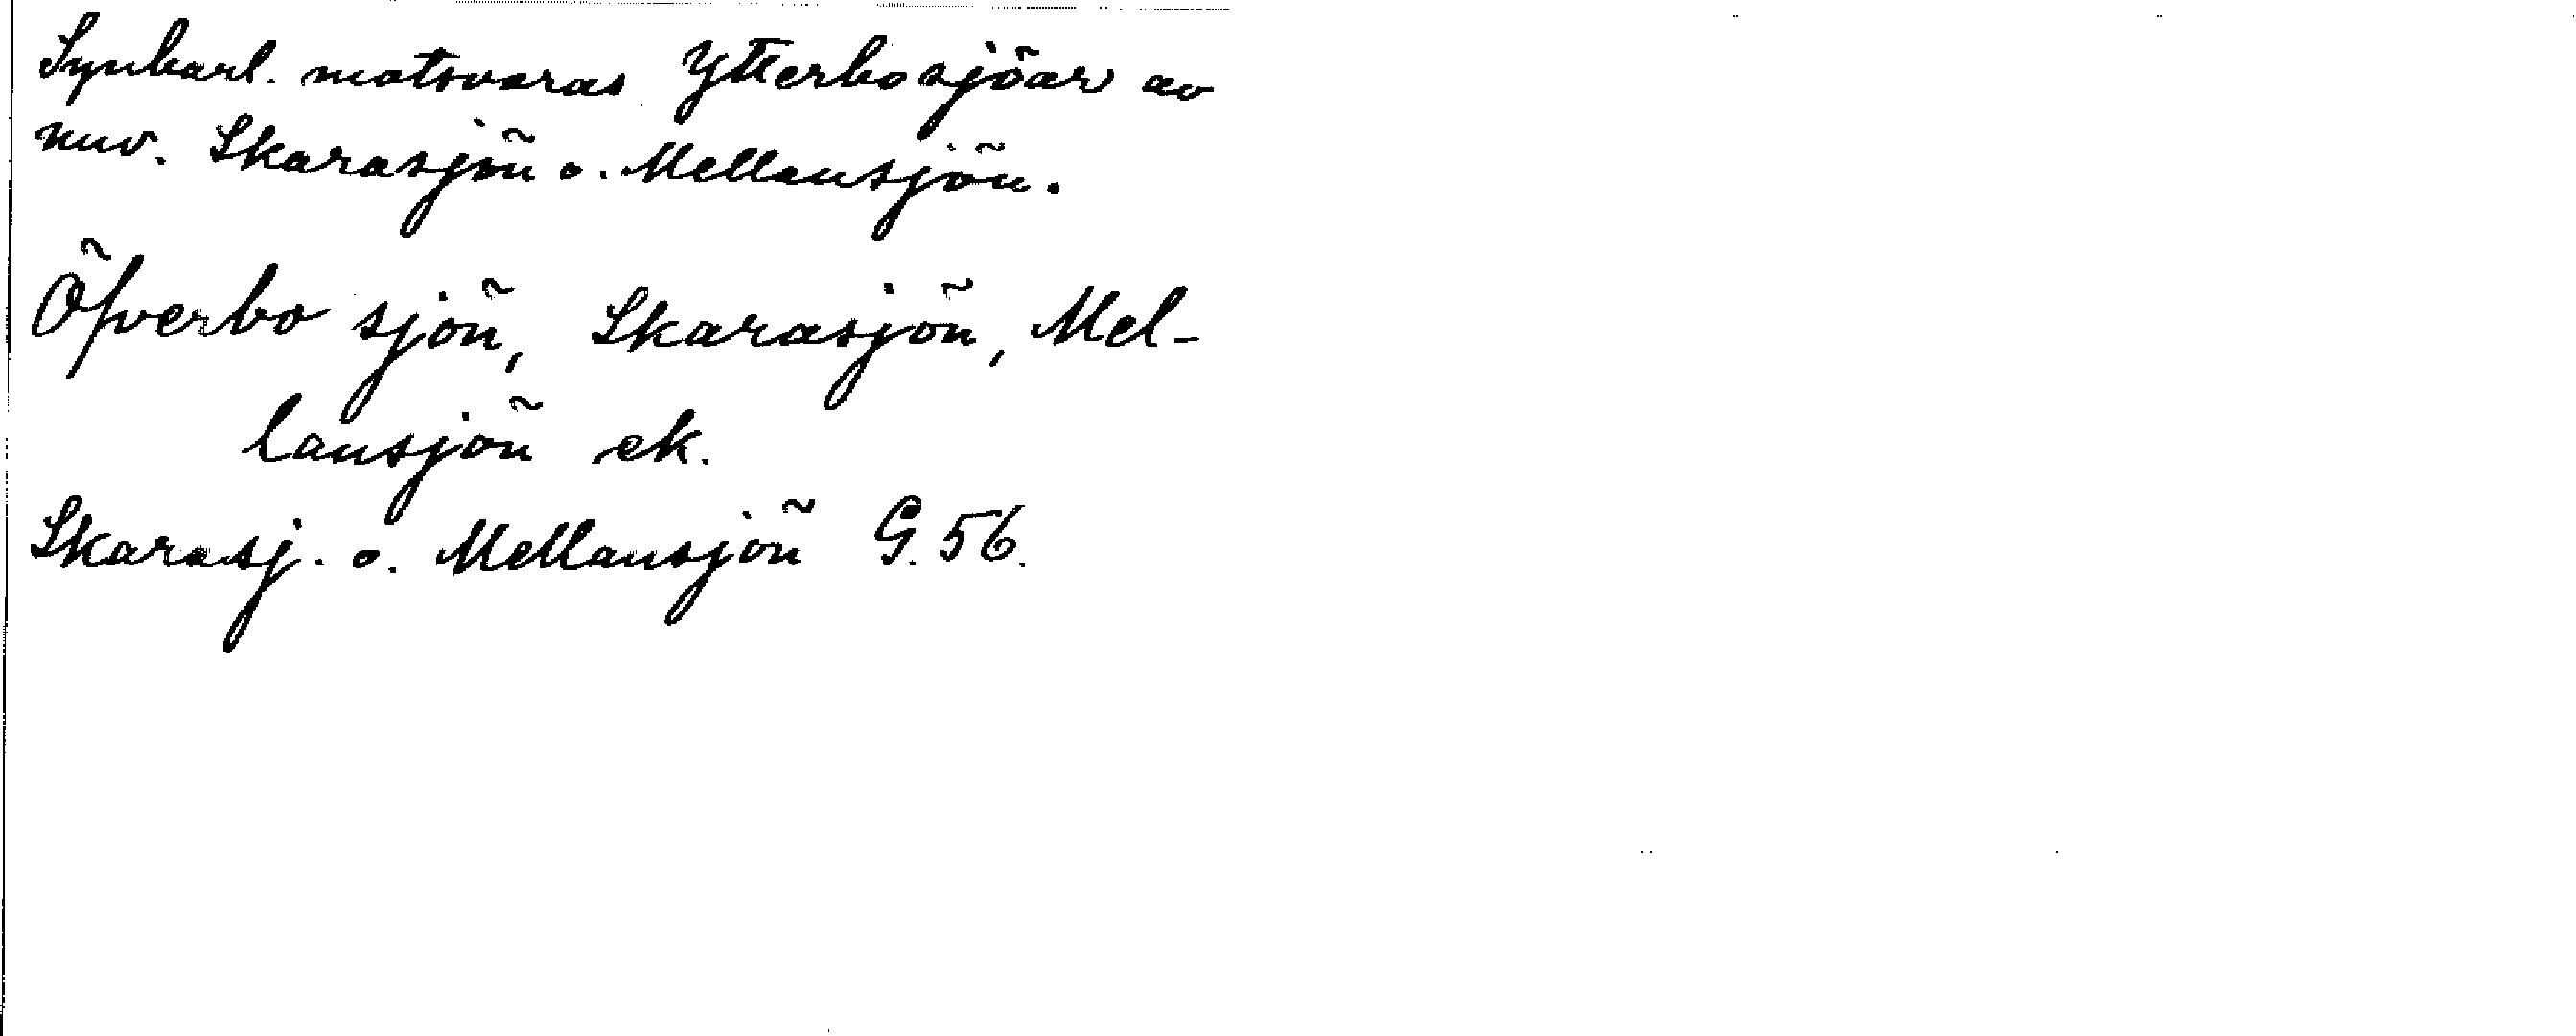 Synbarl. motsvaras Ytterbo sjöar av
nuv. Skarasjön o. Mellansjön.
Öfverbo sjön, Skarasjön, Mel-
lansjön ek.
Skarasj. o. Mellansjön G. 56.